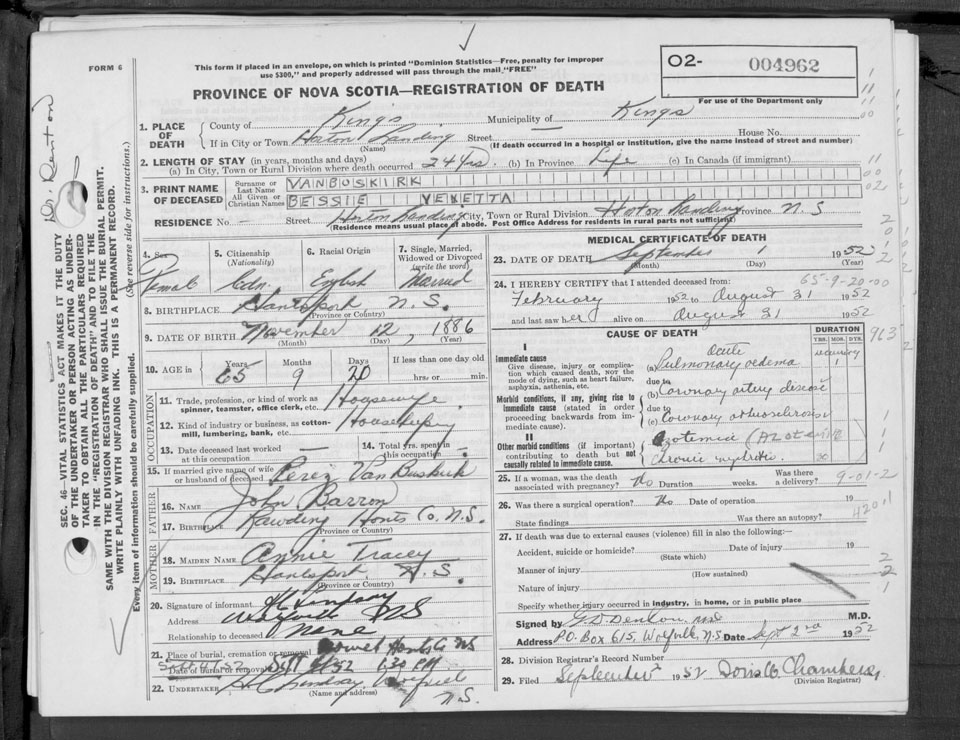 FORM 6
This form if placed in an envelope, on which is printed "Dominion Statistics—Free, penalty for improper
use $300," and properly addressed will pass through the mail "FREE"
O2- 004962
For use of the Department only
PROVINCE OF NOVA SCOTIA—REGISTRATION OF DEATH
1. PLACE OF DEATH
County of Kings Municipality of Kings
If in City or Town Horton Landing Street House No.
(Name) (If death occurred in a hospital or institution, give the name instead of street and number)
2. LENGTH OF STAY (in years, months and days)
(a) In City, Town or Rural Division where death occurred 24 yrs. (b) In Province Life (c) In Canada (if immigrant)
3. PRINT NAME OF DECEASED
Surname or Last Name VANBUSKIRK
All Given or Christian Names BESSIE VENETTA
RESIDENCE No. — Street Horton Landing City, Town or Rural Division Horton Landing Province N.S
(Residence means usual place of abode. Post Office Address for residents in rural parts not sufficient)
4. Sex Female
5. Citizenship (Nationality) Cdn.
6. Racial Origin English
7. Single, Married, Widowed or Divorced (write the word) Married
8. BIRTHPLACE Hantsport N.S.
(Province or Country)
9. DATE OF BIRTH November 12, 1886
(Month) (Day) (Year)
10. AGE in Years 65 Months 9 Days 20 If less than one day old hrs. or min.
OCCUPATION
11. Trade, profession, or kind of work as spinner, teamster, office clerk, etc. Housewife
12. Kind of industry or business, as cotton-mill, lumbering, bank, etc. Housekeeping
13. Date deceased last worked at this occupation —
14. Total yrs. spent in this occupation —
15. If married give name of wife or husband of deceased Perez VanBuskirk
FATHER
16. Name John Barron
17. Birthplace Hants Co. N.S.
(Province or Country)
MOTHER
18. Maiden Name Annie Tracey
19. Birthplace Hantsport N.S.
(Province or Country)
20. Signature of informant
Address Wolfville NS
Relationship to deceased None
21. Place of burial, cremation or removal Hants Co NS
Date of burial or removal 1.30 P.M
22. UNDERTAKER Wolfville
(Name and address) N.S.
MEDICAL CERTIFICATE OF DEATH
23. DATE OF DEATH September 1 1952
(Month) (Day) (Year)
24. I HEREBY CERTIFY that I attended deceased from: 65-9-20-00
February 1952 to August 31 1952
and last saw her alive on August 31 1952
CAUSE OF DEATH
DURATION
YRS. MOS. DYS.
I
Immediate cause
Give disease, injury or complication which caused death, NOT the mode of dying, such as heart failure, asphyxia, asthenia, etc.
Acute
(a) Pulmonary oedema
due to
(b) Coronary artery disease
Morbid conditions, if any, giving rise to immediate cause (stated in order proceeding backwards from immediate cause).
due to
(c) Coronary arteriosclerosis
II
Other morbid conditions (if important) contributing to death but not causally related to immediate cause.
Azotemia
chronic nephritis.
963
25. If a woman, was the death associated with pregnancy? No Duration weeks. Was there a delivery?
9-01-2
26. Was there a surgical operation? No Date of operation 19
State findings Was there an autopsy?
27. If death was due to external causes (violence) fill in also the following:—
Accident, suicide or homicide? Date of injury 19
(State which)
Manner of injury
(How sustained)
Nature of injury
Specify whether injury occurred in industry, in home, or in public place
Signed by G D Denton M.D.
Address P.O. Box 615, Wolfville, N.S Date Sept 2nd 1952
28. Division Registrar's Record Number
29. Filed September 1952 Doris C. Chambers
(Division Registrar)
SEC. 46—VITAL STATISTICS ACT MAKES IT THE DUTY
OF THE UNDERTAKER OR PERSON ACTING AS UNDER-
TAKER TO OBTAIN ALL THE PARTICULARS REQUIRED
IN THE "REGISTRATION OF DEATH" AND TO FILE THE
SAME WITH THE DIVISION REGISTRAR WHO SHALL ISSUE THE BURIAL PERMIT.
WRITE PLAINLY WITH UNFADING INK. THIS IS A PERMANENT RECORD.
Every item of information should be carefully supplied. (See reverse side for instructions.)